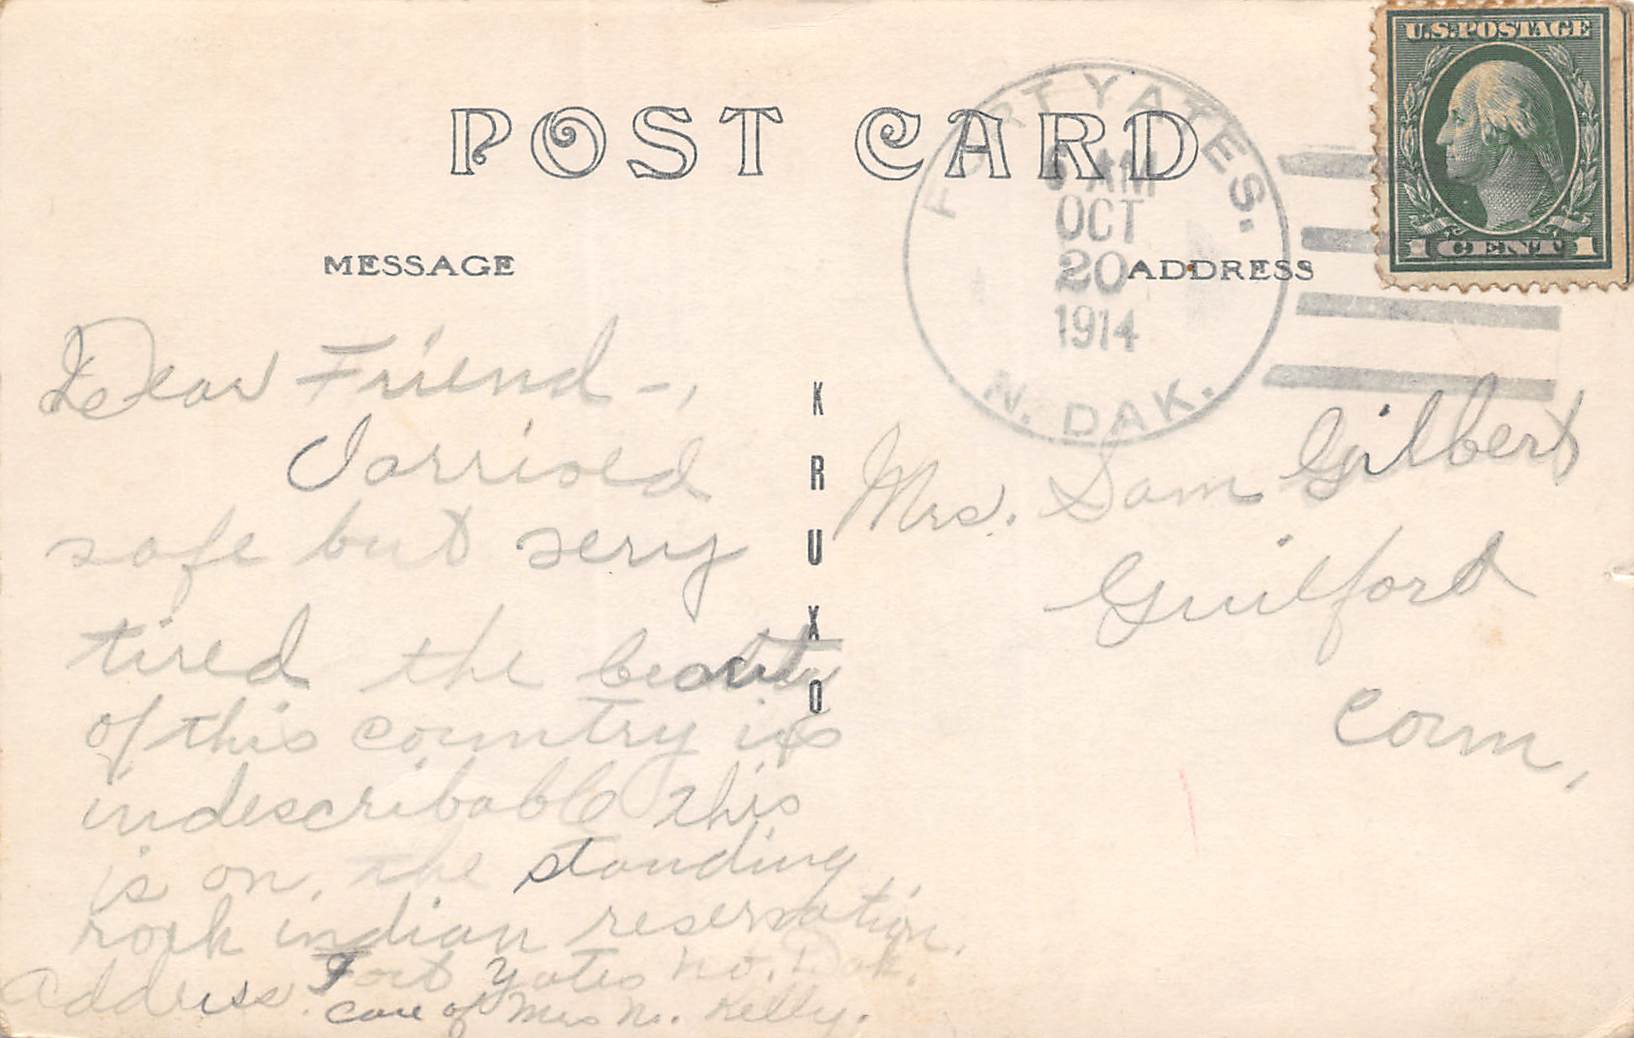 U.S. POSTAGE
1 CENT 1
POST CARD
FORT YATES.
AM
OCT
20
1914
N. DAK.
MESSAGE
ADDRESS
KRUXO
Dear Friend -,
I arrived
safe but very
tired the beauty
of this country is
indescribable this
is on, the standing
rock indian reservation.
address. Fort Yates No. Dak.
care of Mrs N. Kelly.
Mrs. Sam Gilbert
Guilford
Conn,